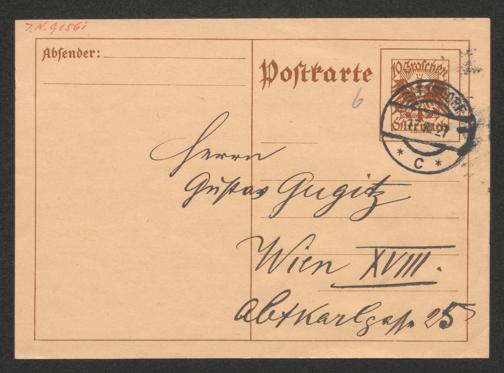 Absender:
Postkarte
10 Groschen
Österreich
6
27
* C *
Herrn
Gustav Gugitz
Wien XVIII.
Abt Karlgasse 25